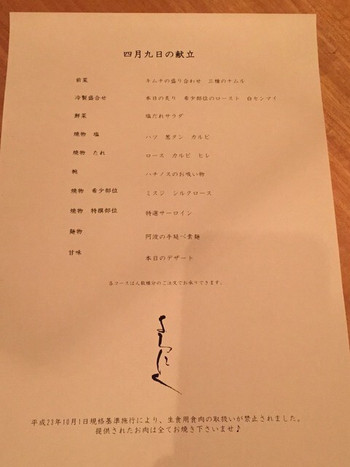 四月九日の献立
前菜 キムチの盛り合わせ 三種のナムル
冷製盛合せ 本日の炙り 希少部位のロースト 白センマイ
鮮菜 塩だれサラダ
焼物 塩 ハツ 黒タン カルビ
焼物 たれ ロース カルビ ヒレ
椀 ハチノスのお吸い物
焼物 希少部位 ミスジ シルクロース
焼物 特撰部位 特選サーロイン
麺物 阿波の手延べ素麺
甘味 本日のデザート
各コースは人数様分のご注文でお承りできます。
よろにく
平成23年10月1日規格基準施行により、生食用食肉の取扱いが禁止されました。
提供されたお肉は全てお焼き下さいませ♪